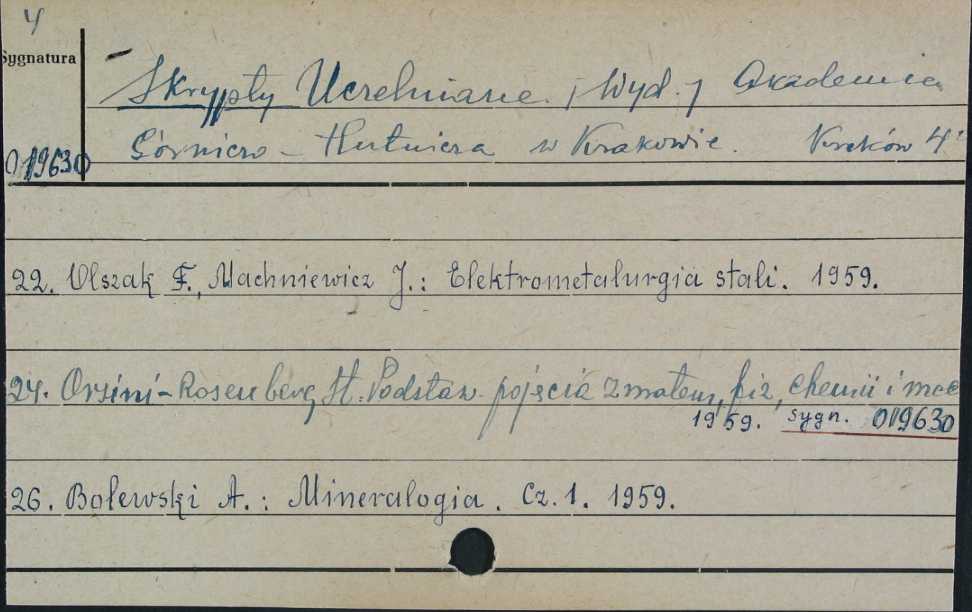 4
Sygnatura
Skrypty Uczelniane. / Wyd. / Akademia
Górniczo - Hutnicza w Krakowie. Kraków 4°
019630
22. Olszak F., Machniewicz J.: Elektrometalurgia stali. 1959.
24. Orsini-Rosenberg St. Podstaw. pojęcia z matem, fiz, chemii i mec
1959. sygn. 019630
26. Bolewski A.: Mineralogia. Cz. 1. 1959.